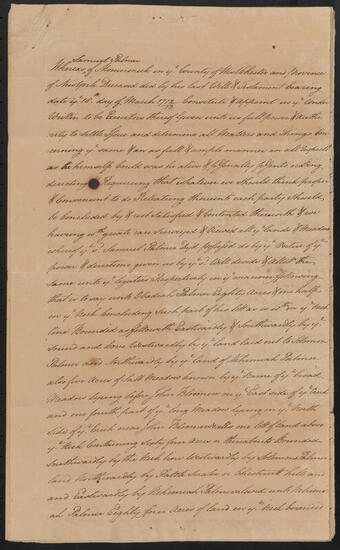 Samuel Palmer
Whereas of Momoroneck in yᵉ County of Westchester and Province
of New York Deceased did by his last Will & Testament bearing
date yᵉ 18th day of March Constitute & Appoint us yᵉ Under
Written to be Executors thereof Given unto us full power & Autho
rity to Settle Give and determine all Matters and things Con
cerning yᵉ same & in as full & ample manner in all respects
as he himself could was he alive & personally presents ordering
directing & Requiring that whatever we should think proper
& Convenient to do Relateing thereunto each party should
be concluded by & rest Satisfied & Contented therewith & we
having with great care Surveyed & Viewed all yᵉ Lands & Meadow
whereof yᵉ sd Samuel Palmer Dyd Possessed do by yᵉ Vertue of yᵉ
power & direction given us by yᵉ sd Will divide & Allot the
Same unto yᵉ Legatees Respectively in yᵉ manner following
that is to say unto Obadiah Palmer Eighty Acres & one half
in yᵉ Neck Concluding Such part of his lot as is in yᵉ Neck
line Bounded as followeth Eastwardly & Southwardly by yᵉ
Sound and Westwardly by yᵉ land laid out to Solomon
Palmer and Northwardly by yᵉ land of Nehemiah Palmer
also five Acres of Salt Meadow known by yᵉ Name of yᵉ broad
Meadow lying before John Bloomer on yᵉ East side of yᵉ Creek
and one fourth part of yᵉ long Meadow lying in yᵉ North
side of yᵉ Creek near John Bloomer's also one lot of land above
yᵉ Neck Containing Sixty four Acres or thereabout Bounded
Southwardly by the Neck line Westwardly by Solomon Palmer
land Northwardly by Ralph or Chestnut hill and
and Eastwardly by Nehemiah Palmers land unto Nehemi
ah Palmer Eighty four Acres of land in yᵉ Neck bounded